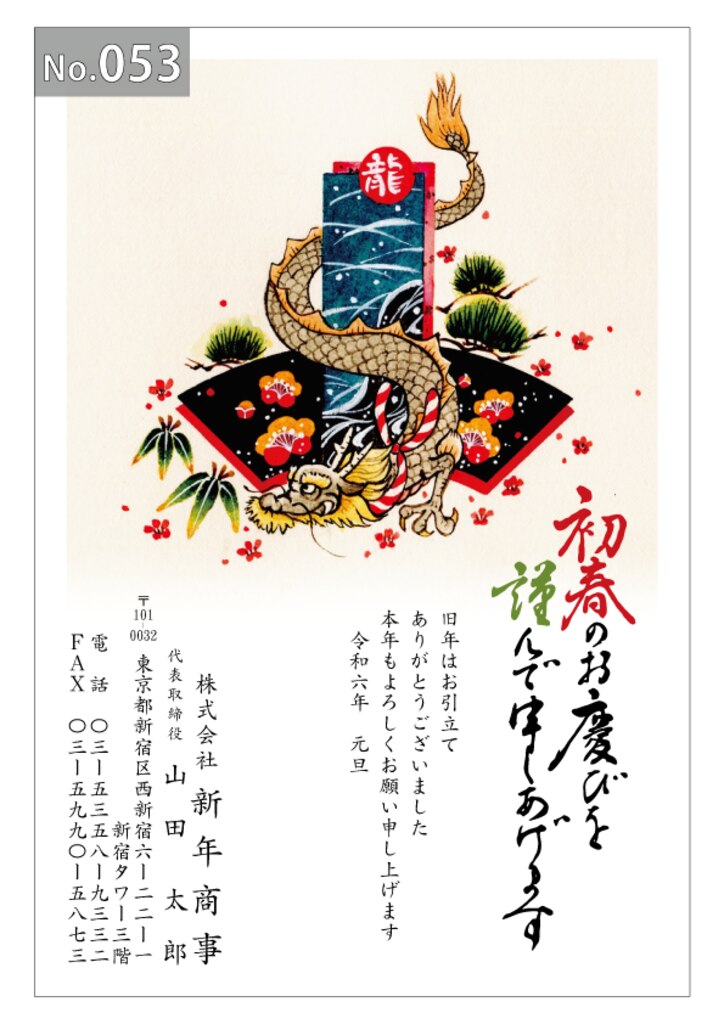 No.053
龍
初春のお慶びを
謹んで申しあげます
旧年はお引立て
ありがとうございました
本年もよろしくお願い申し上げます
令和六年 元旦
株式会社 新年商事
代表取締役 山田太郎
〒101-0032 東京都新宿区西新宿六ー二二ー一
新宿タワー三階
電話 〇三ー五三五八ー九三三二
FAX 〇三ー五九九〇ー五八七三